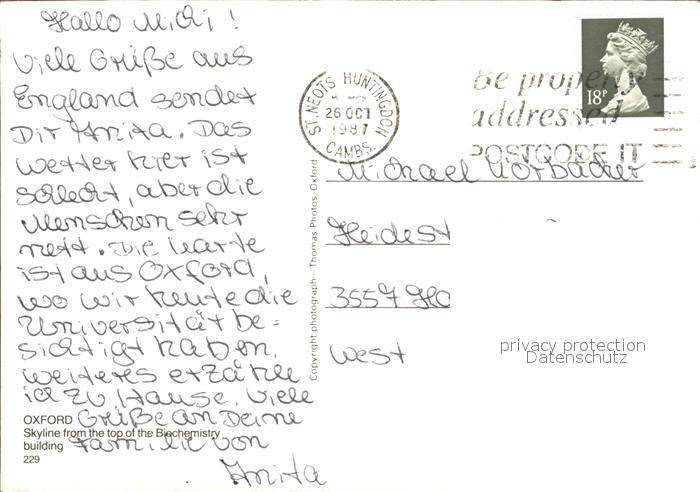 Hallo Michi!
Viele Grüße aus
England sendet
Dir Anita. Das
Wetter hier ist
schlecht, aber die
Menschen sehr
nett. Die Karte
ist aus Oxford,
wo wir heute die
Universität be=
sichtigt haben.
Weiteres erzähle
ich zu Hause. Viele
Grüße an Deine
Familie von
Anita
OXFORD
Skyline from the top of the Biochemistry
building
229
Copyright photograph—Thomas Photos, Oxford
ST. NEOTS HUNTINGDON
26 OCT
1987
CAMBS.
Be properly
addressed
POSTCODE IT
18P
Michael
Heidest
3557
West
privacy protection
Datenschutz